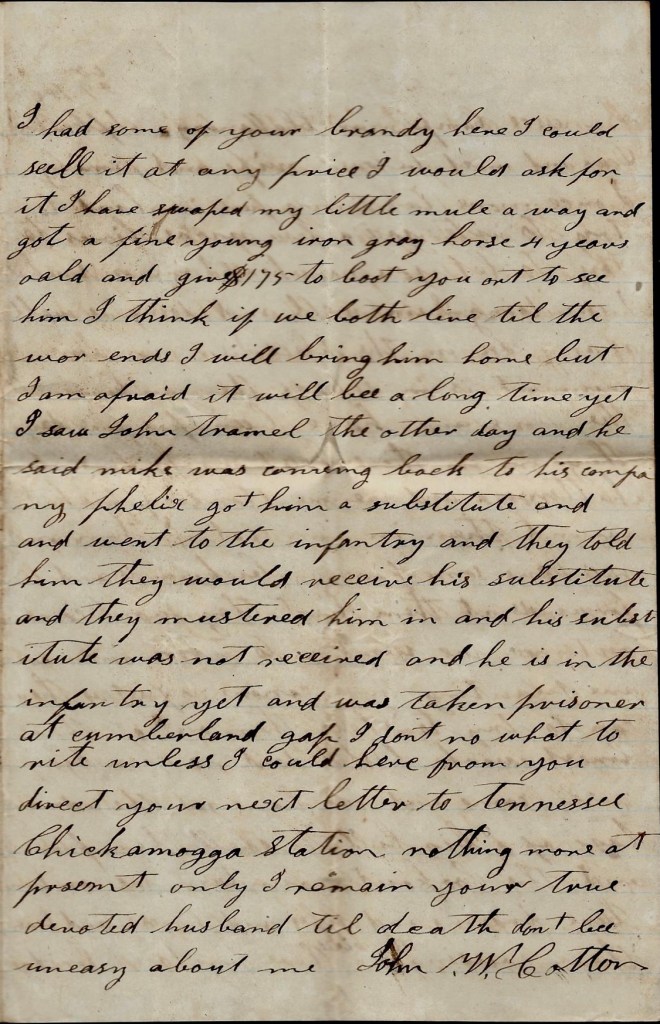 I had some of your brandy here I could
sell it at any price I would ask for
it I have swaped my little mule a way and
got a fine young iron gray horse 4 years
oald and give $175 to boot you ort to see
him I think if we both live til the
wor ends I will bring him home but
I am afraid it will bee a long time yet
I saw John tramel the other day and he
said mike was comeing back to his compa
ny phelix got him a substitute and
and went to the infantry and they told
him they would receive his substitute
and they mustered him in and his subst
itute was not received and he is in the
infantry yet and was taken prisoner
at cumberland gap I dont no what to
rite unless I could here from you
direct your next letter to tennessee
Chickamogga station nothing more at
presemt only I remain your true
devoted husband til death dont bee
uneasy about me John W. Cotton